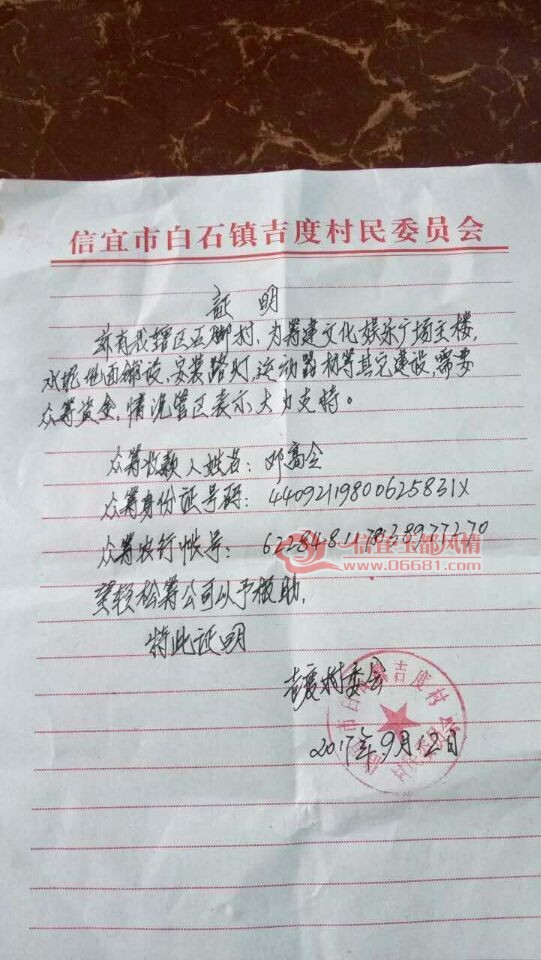 信宜市白石镇吉度村民委员会
证明
兹有我辖区石脚村,为筹建文化娱乐广场主楼,
水坭地面铺设,安装路灯,运动器材等其它建设,需要
众筹资金,情况管区表示大力支持。
众筹收款人姓名:邓高全
众筹身份证号码:44092119800625831X
众筹农行帐号:622848117
望轻松筹公司以予报助,
特此证明
吉度村委会
2017年9月12日
信宜玉都风情
www.06681.com